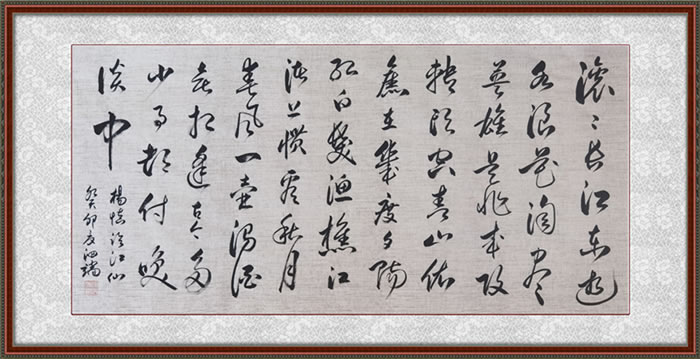 滚滚长江东逝
水浪花淘尽
英雄是非成败
转头空青山依
舊在幾度夕陽
红白髮渔樵江
渚上惯看秋月
春风一壶浊酒
喜相逢古今多
少事都付笑
谈中
楊慎临江仙
癸卯夏